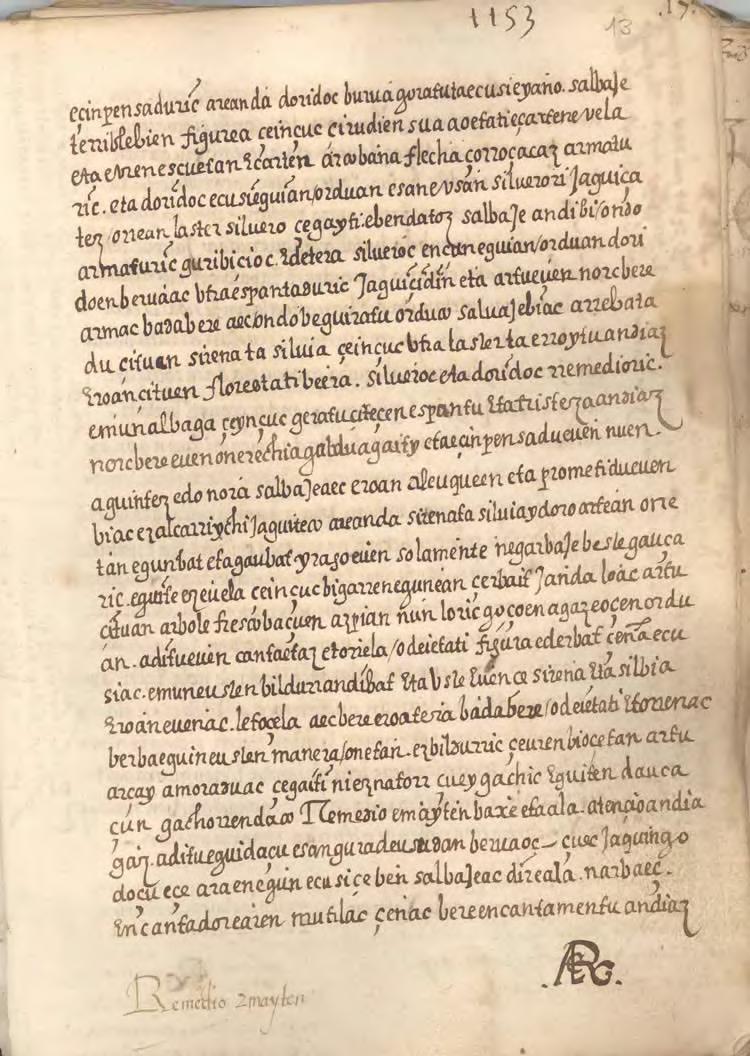 1153 13 .13.
ecinpensaduric areanda doridoc burua goratutaecusieyaño. salbaJe
terriblebien figurea ceincuc cirudien sua aoetatiecartene vela
eta errenescuetan ecarten arcobana flecha çorroçacaz armatu
ric. eta doridoc ecusieguian/orduan esanevsan silverori Jaguica
tez /orrean laster silvero çegayti ebendatoz salbaJe andi bi/ondo
armaturic guribicioc. Edetera silveroc encuneguian/orduan dori
doenberuac vtraespantaduric Jaguicidin eta artueuen norcbere
armac badabere aecondobeguiratu orduco saluaJebiac arrebata
du cituan sirena ta siluia ceincuc vtra lasterta erroytuandiaz
Eroancituen florestati bera. silveroc eta doridoc rremedioric.
emunalbaga çeyncuc geratu citecen espantu Eta tristeza andiaz
norcbere euen onerechia galdua gaity eta ecinpensadueuen nuen.
aguintez edo nora salbaJeaec eroan aleuqueen eta prometidu euen
biac ezalcarrichi Jaguiteco areanda sirenata siluiaydoro artean orre
tan egunbat eta gaubat yragoeuen solamente negarbaJe beste gauça
ric. eguite ezeuela ceincuc bigarrenegunean cerbait Janda loac artu
cituan arbole frescobaçuen azpian nun loric goçoenagaz eoçen ordu
an. aditueuen cantaetaz etoriela /odeietati figura ederbat çeña ecu
siac. emuneusten bildurrandibat Eta vste Euence sirena Eta silbia
Eroaneuenac. letocela aecbere eroatera badabere /odeietati Etorrenac
berbaeguineusten manera/onetan. ezbildurric çeuren biocetan artu
arçay amoraduac cegaiti nieznatorr çuey gachic Eguiten dauca
çun gachorrendaco Remedio emayten baxe eta ala. atençio andia
gaz. aditueguidaçu esangura deusudan beruaoc — cuec Jaquingo
doçu ece araenegun ecusiceben salbaJeac direala. narbaec.
Encantadorearen mutilac çeñac bere encantamentu andiaz
Remedio emayten